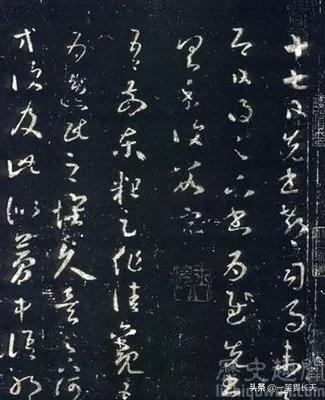 十七日先書郗司馬未去
即日得足下書為慰先書
以具示復數字
吾前東粗足作佳觀吾
為逸民之懷久矣足下何以
方復及此似夢中語耶
歷史趣聞
头条 @一笑貫长天